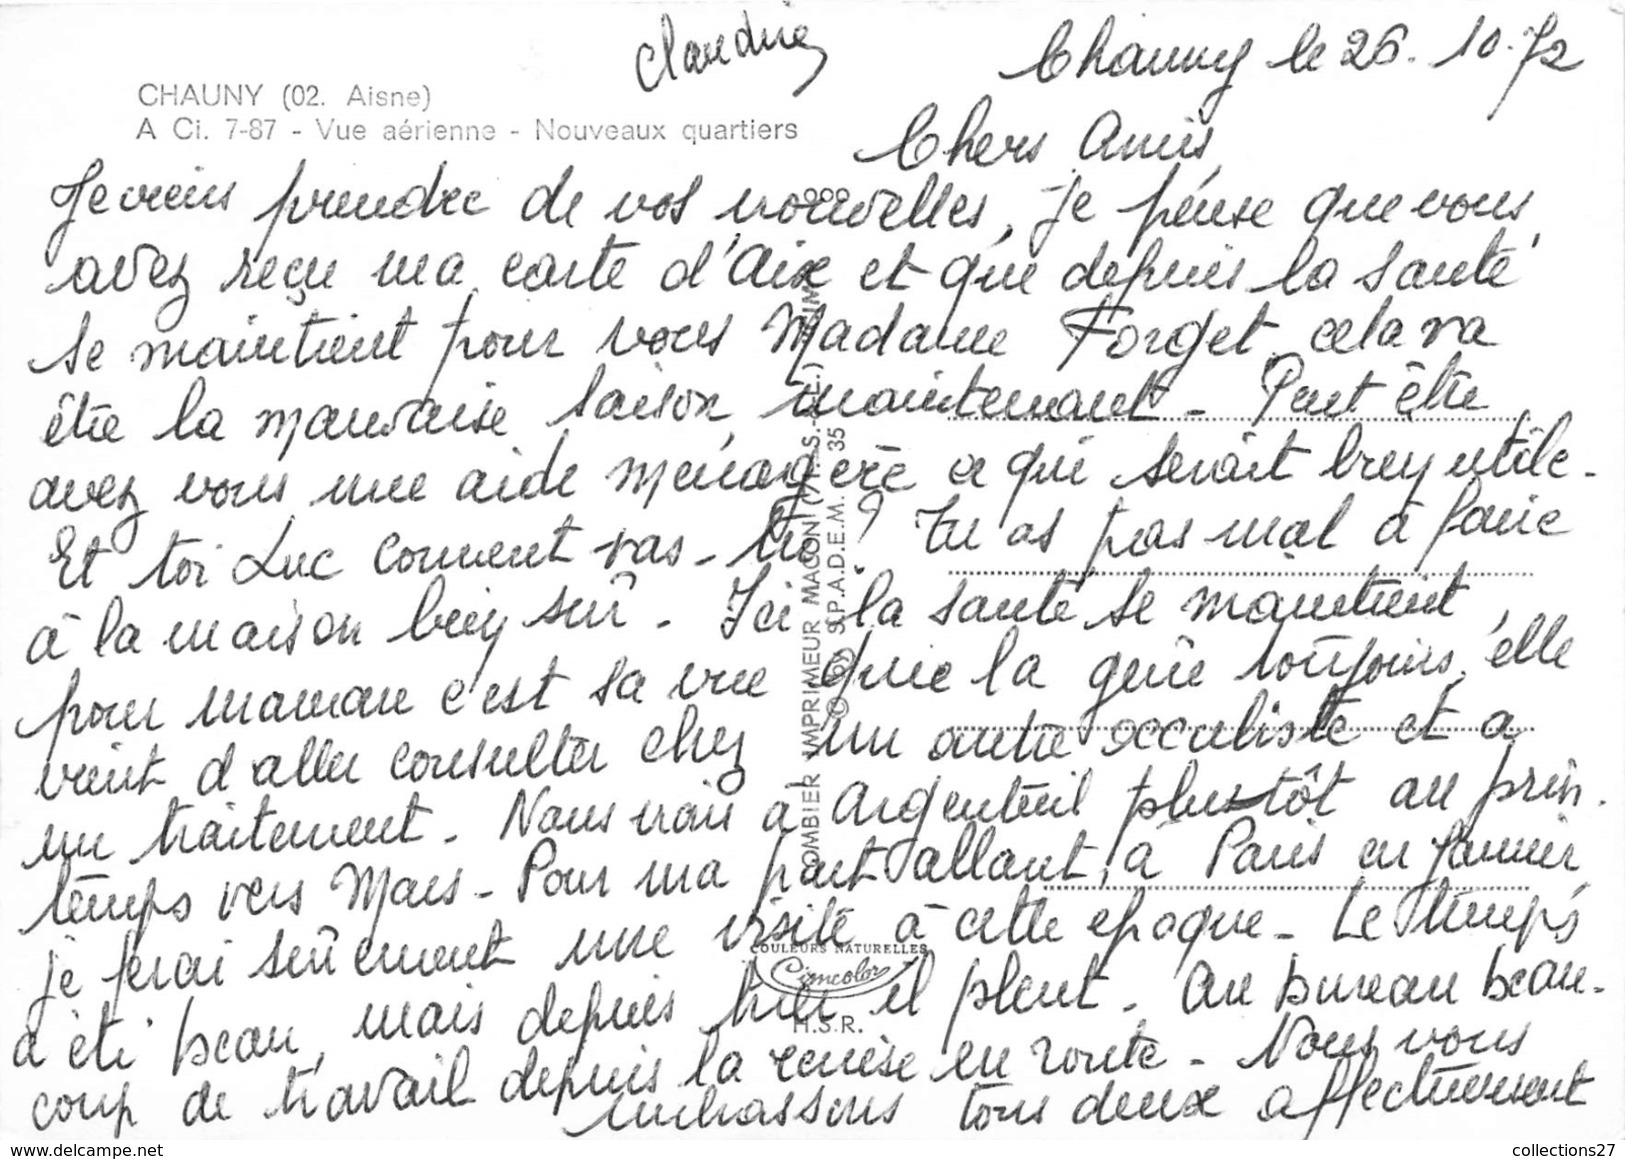 Claudine
Chauny le 26.10.72
CHAUNY (02. Aisne)
A Ci. 7-87 - Vue aérienne - Nouveaux quartiers
Chers Amis,
Je viens prendre de vos nouvelles, je pense que vous
avez reçu ma carte d'Aix et que depuis la santé
se maintient pour vous Madame Forget, cela va
être la mauvaise saison maintenant - Peut être
avez vous une aide ménagère ce qui serait bien utile -
Et toi Luc comment vas-tu ? Tu as pas mal à faire
à la maison bien sûr. Ici la santé se maintient,
pour maman c'est sa vue qui la gêne toujours, elle
vient d'aller consulter chez un autre occuliste et a
un traitement. Nous irons à Argenteuil plustôt au prin.
temps vers Mars - Pour ma part allant à Paris en Janvier,
je ferai sûrement une visite à cette époque - Le temps
a été beau, mais depuis hier il pleut. Au bureau beau-
coup de travail depuis la remise en route - Nous vous
embrassons tous deux affectueusement
COMBIER IMPRIMEUR MACON
© by S.P.A.D.E.M. 35
COULEURS NATURELLES
Cimcolor
H.S.R.
collections27